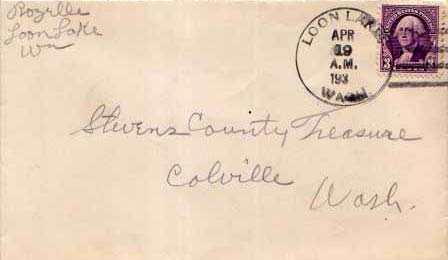 Rozelle
Loon Lake
Wn
LOON LAKE
APR
19
A.M.
193
WASH.
3
Stevens County Treasure
Colville
Wash.